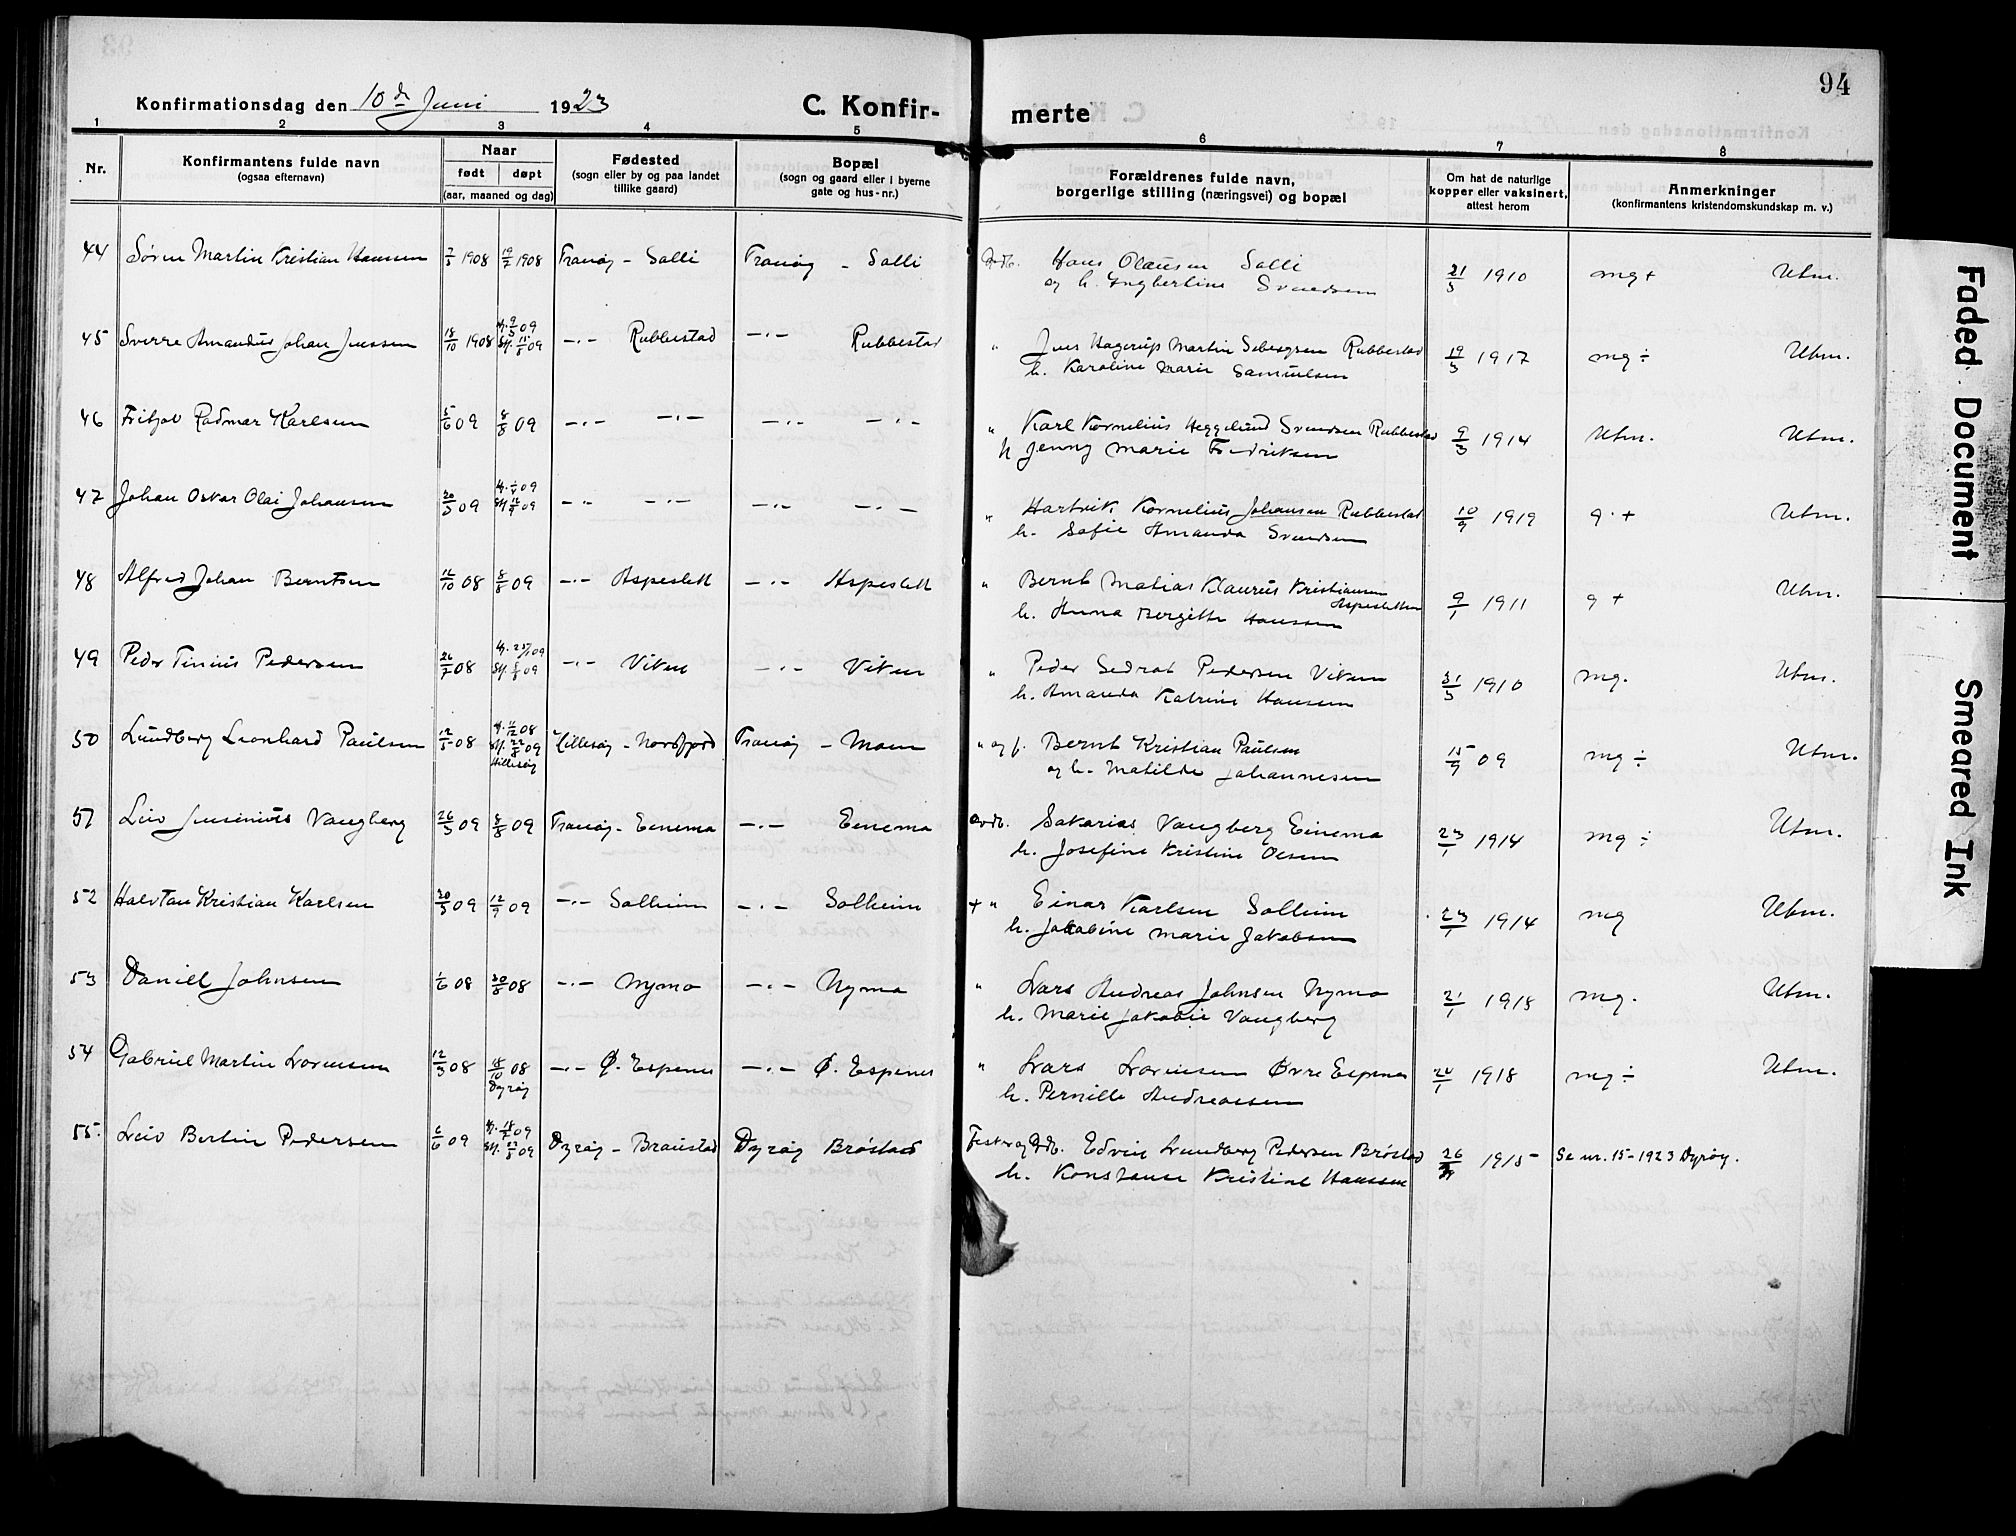 94
Konfirmationsdag den 10de Juni 1923
C. Konfir-
merte
1 2 3 4 5 6 7 8
Nr.
Konfirmantens fulde navn
(ogsaa efternavn)
Naar
født døpt
(aar, maaned og dag)
Fødested
(sogn eller by og paa landet
tillike gaard)
Bopæl
(sogn og gaard eller i byerne
gate og hus-nr.)
Forældrenes fulde navn,
borgerlige stilling (næringsvei) og bopæl
Om hat de naturlige
kopper eller vaksinert,
attest herom
Anmerkninger
(konfirmantens kristendomskundskap m. v.)
44 Søren Martin Kristian Hansen 7/3 1908 19/7 1908 Tranøy - Solli Tranøy - Solli Hans Olausen Solli 21/5 1910 mg + Utm.
og h. Ingbertine Svendsen
45 Sverre Amandus Johan Jensen 18/10 1908 hj. 9/5 09 Rubbestad Rubbestad " Jens Hagerup Martin Rubbestad 19/3 1917 mg ÷ Utm.
st. 15/8 09 h. Karoline Marie Samuelsen
46 Fritjov Radmar Karlsen 5/6 09 8/8 09 -"- -"- -"- -"- " Karl Kornelius Heggelund Svendsen Rubbestad 9/3 1914 Utm. Utm.
h Jenny Marie Fredriksen
47 Johan Oskar Olai Johansen 20/5 09 09 -"- -"- -"- -"- " Hartvik Kornelius Johansen Rubbestad 10/9 1919 g. + Utm.
st. 12/9 09 h. Sofie Amanda Svendsen
48 Alfred Johan Berntsen 16/10 08 8/8 09 -"- Aspeslett -"- Aspeslett " Bernt Matias Klaurus Kristiansen 9/1 1911 g + Utm.
h. Anna Bergitte Hanssen Aspesletten
49 Peder Tinius Pedersen 26/7 08 09 -"- Viken -"- Viken " Peder Sedrat Pedersen Viken 31/5 1910 mg. Utm.
st. 09 h. Amanda Katrine Hansen
50 Lundberg Leonhard Paulsen 12/5 08 08 Hillesøy - Nordfjord Tranøy - Moen " og f. Bernt Kristian Paulsen 15/9 09 mg ÷ Utm.
st. 22/8 09 og h. Matilde Johannesen
Hillesøy
51 Leiv Jensenius Vangberg 26/3 09 8/8 09 Tranøy - Einemo -"- Einemo Sakarias Vangberg Einemo 23/1 1914 mg ÷ Utm.
h. Josefine Kristine Olsen
52 Halvdan Kristian Karlsen 30/5 09 12/9 09 -"- Solheim -"- Solheim + " Einar Karlsen Solheim 23/1 1914 mg Utm.
h. Jakobine Marie Jakobsen
53 Daniel Johnsen 1/6 08 30/8 08 -"- Nymo -"- Nymo " Lars Andreas Johnsen Nymo 21/1 1918 mg. Utm.
h. Marie Jakobie Vangberg
54 Gabriel Martin Lorensen 12/3 08 18/10 08 -"- Ø. Espenes -"- Ø. Espenes " Lars Lorensen Øvre Espenes 1918 mg ÷ Utm.
Dyrøy h. Pernille Andreassen
55 Leiv Bertin Pedersen 6/6 09 09 Dyrøy - Brøstad Dyrøy Brøstad Edvin Lundberg Pedersen Brøstad 26 1915 Se nr. 15 - 1923 Dyrøy.
st. 22/8 09 h. Konstanse Kristine Hanssen
Faded Document
Smeared Ink